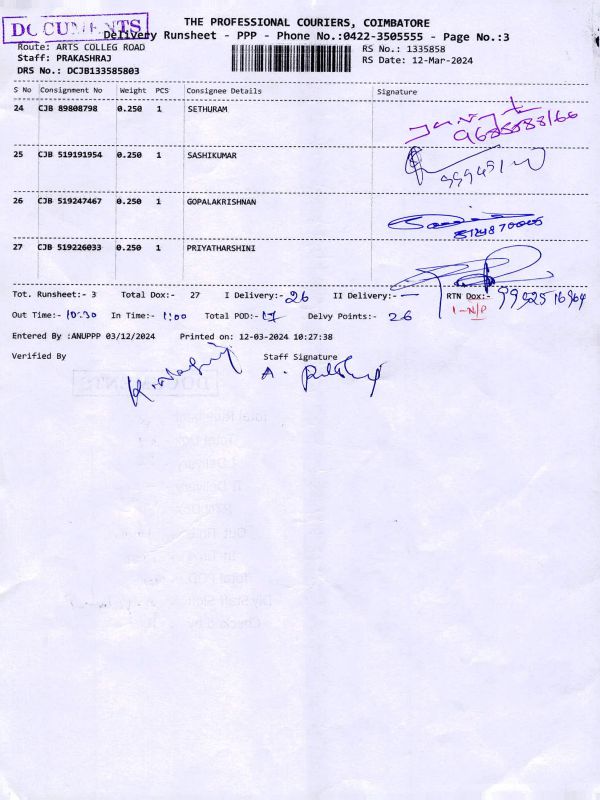 THE PROFESSIONAL COURIERS, COIMBATORE
DOCUMENTS
Delivery Runsheet - PPP - Phone No.:0422-3505555 - Page No.:3
Route: ARTS COLLEG ROAD RS No.: 1335858
Staff: PRAKASHRAJ RS Date: 12-Mar-2024
DRS No.: DCJB133585803
S No Consignment No Weight PCS Consignee Details Signature
24 CJB 89808798 0.250 1 SETHURAM
25 CJB 519191954 0.250 1 SASHIKUMAR
26 CJB 519247467 0.250 1 GOPALAKRISHNAN
27 CJB 519226033 0.250 1 PRIYATHARSHINI
Tot. Runsheet:- 3 Total Dox:- 27 I Delivery:- 26 II Delivery:- — RTN Dox:-
1-N/P
Out Time:- 10:30 In Time:- 1:00 Total POD:- 17 Delvy Points:- 26
Entered By :ANUPPP 03/12/2024 Printed on: 12-03-2024 10:27:38
Verified By Staff Signature